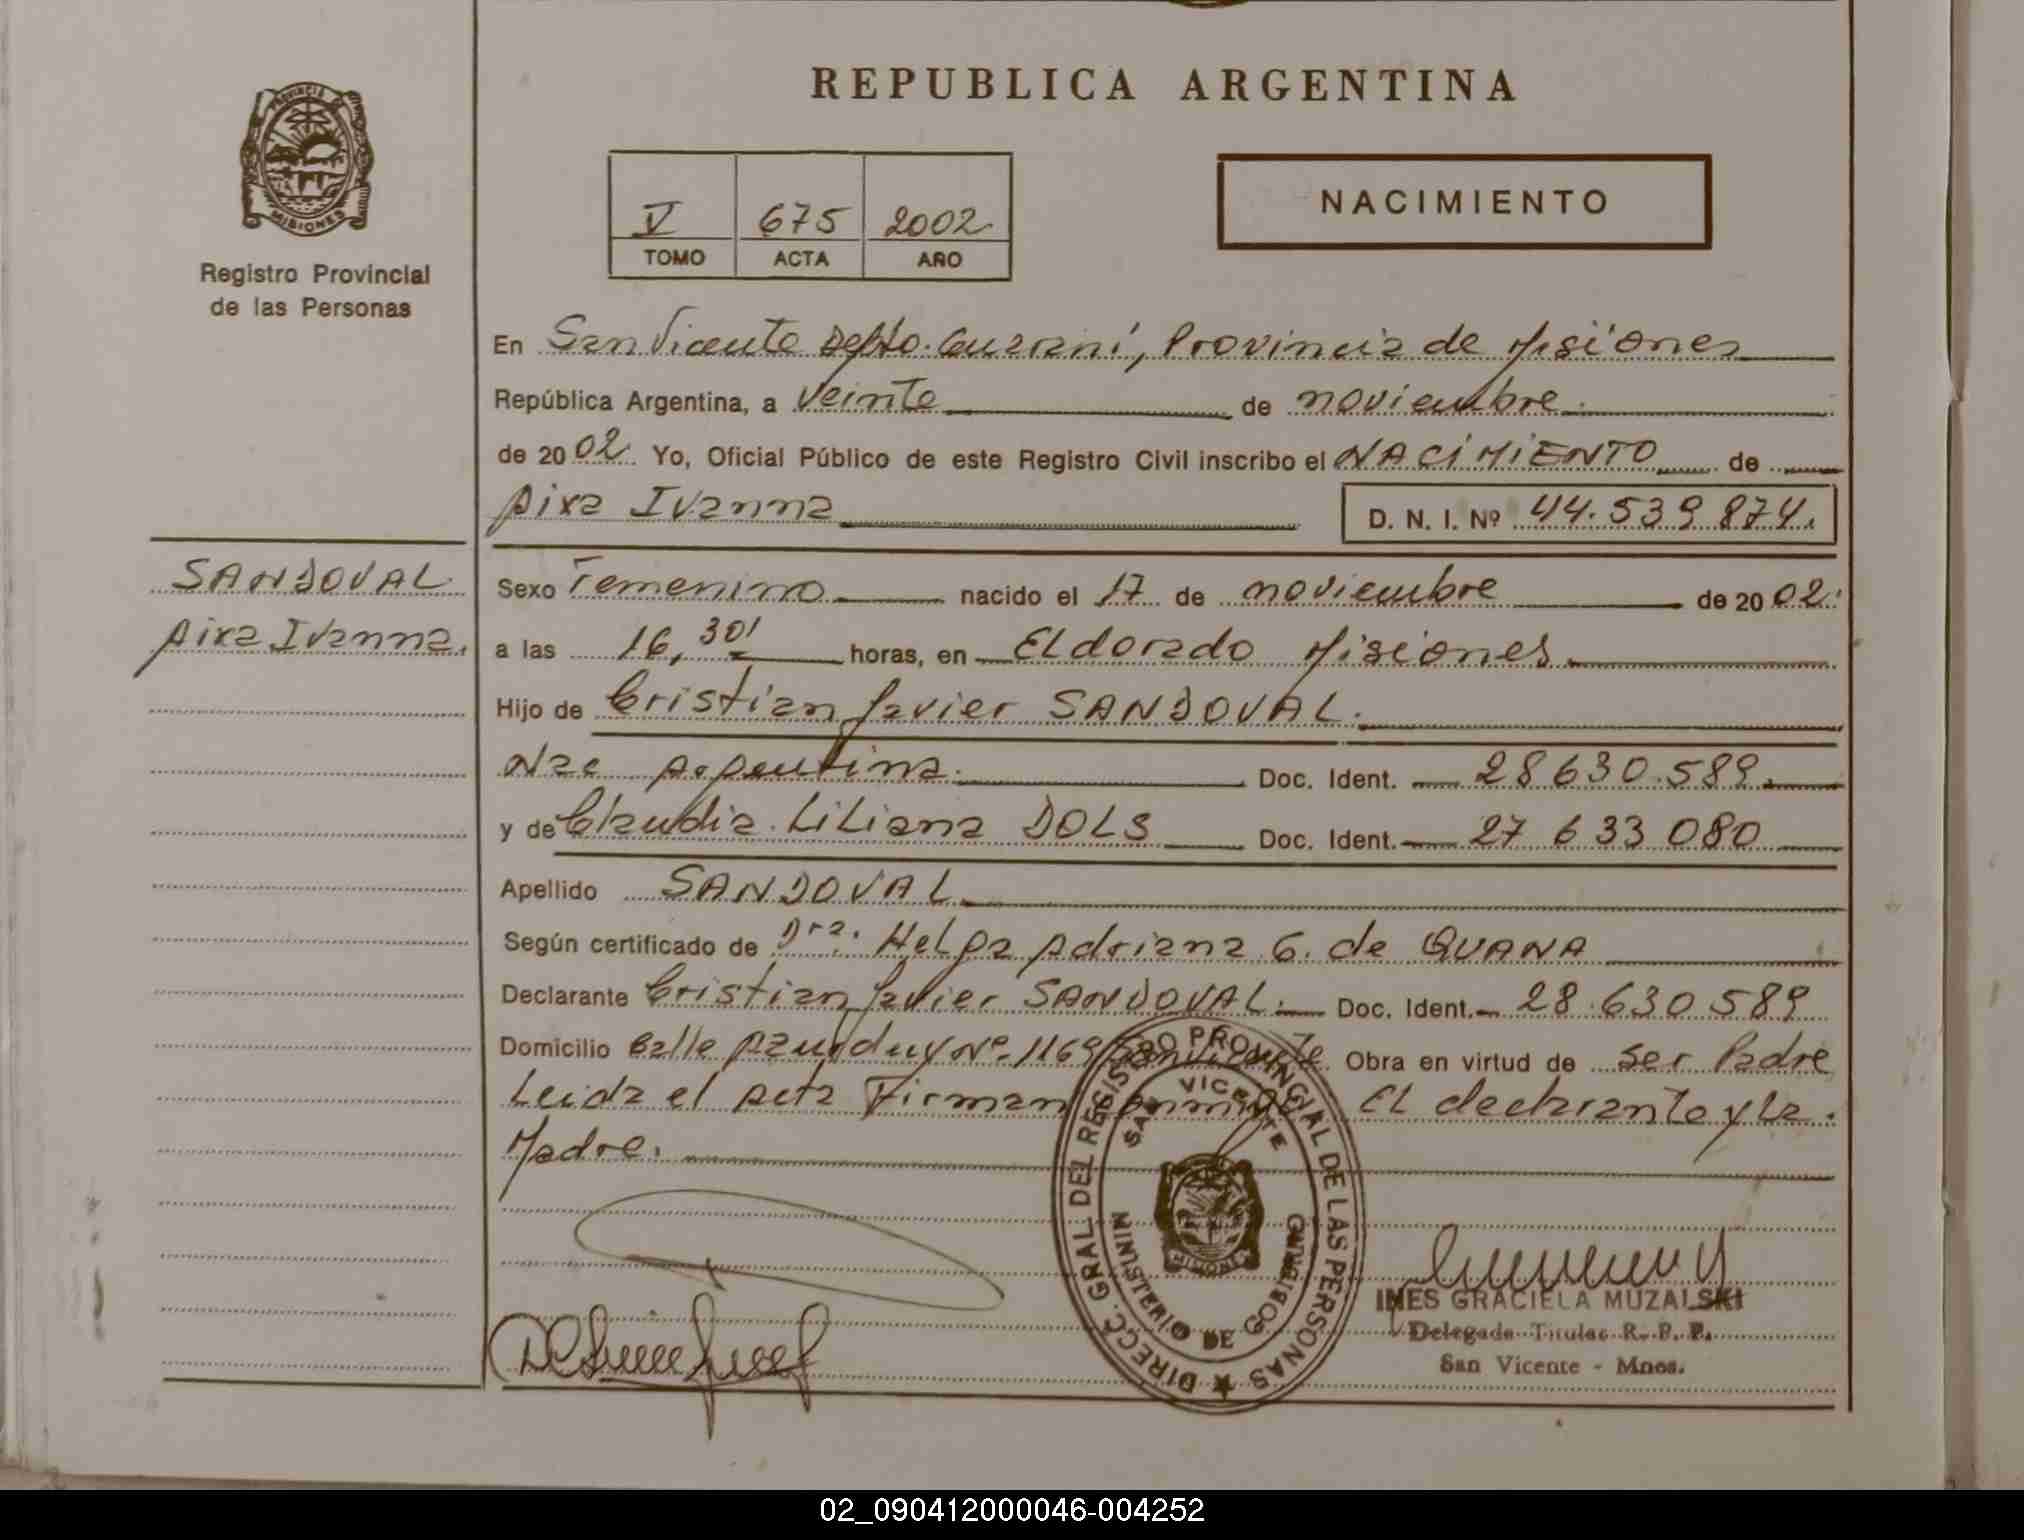 REPUBLICA ARGENTINA
PROVINCIA DE
MISIONES
Registro Provincial
de las Personas
V 675 2002
TOMO ACTA AÑO
NACIMIENTO
En San Vicente Depto. Guarani, Provincia de Misiones
República Argentina, a veinte de noviembre
de 2002 Yo, Oficial Público de este Registro Civil inscribo el NACIMIENTO de
Aixa Ivanna D. N. I. Nº 44.539 874.
SANDOVAL
Aixa Ivanna.
Sexo Femenino nacido el 17 de noviembre de 2002
a las 16,30' horas, en Eldorado Misiones
Hijo de Cristian Javier SANDOVAL.
Nac Argentina. Doc. Ident. 28 630.589
y de Claudia Liliana DOLS Doc. Ident. 27 633 080
Apellido SANDOVAL
Según certificado de Dra. Helga Adriana G. de QUANA
Declarante Cristian Javier SANDOVAL. Doc. Ident. 28.630 589
Domicilio Calle Azurduy Nº. 1169 San Vicente Obra en virtud de ser Padre
Leida el acta Firman conmigo El declarante y La
Madre.
DIRECC. GRAL DEL REGISTRO PROVINCIAL DE LAS PERSONAS
SAN VICENTE
MISIONES
MINISTERIO DE GOBIERNO
INES GRACIELA MUZALSKI
Delegada Titular R. P. P.
San Vicente - Mnes.
02_090412000046-004252